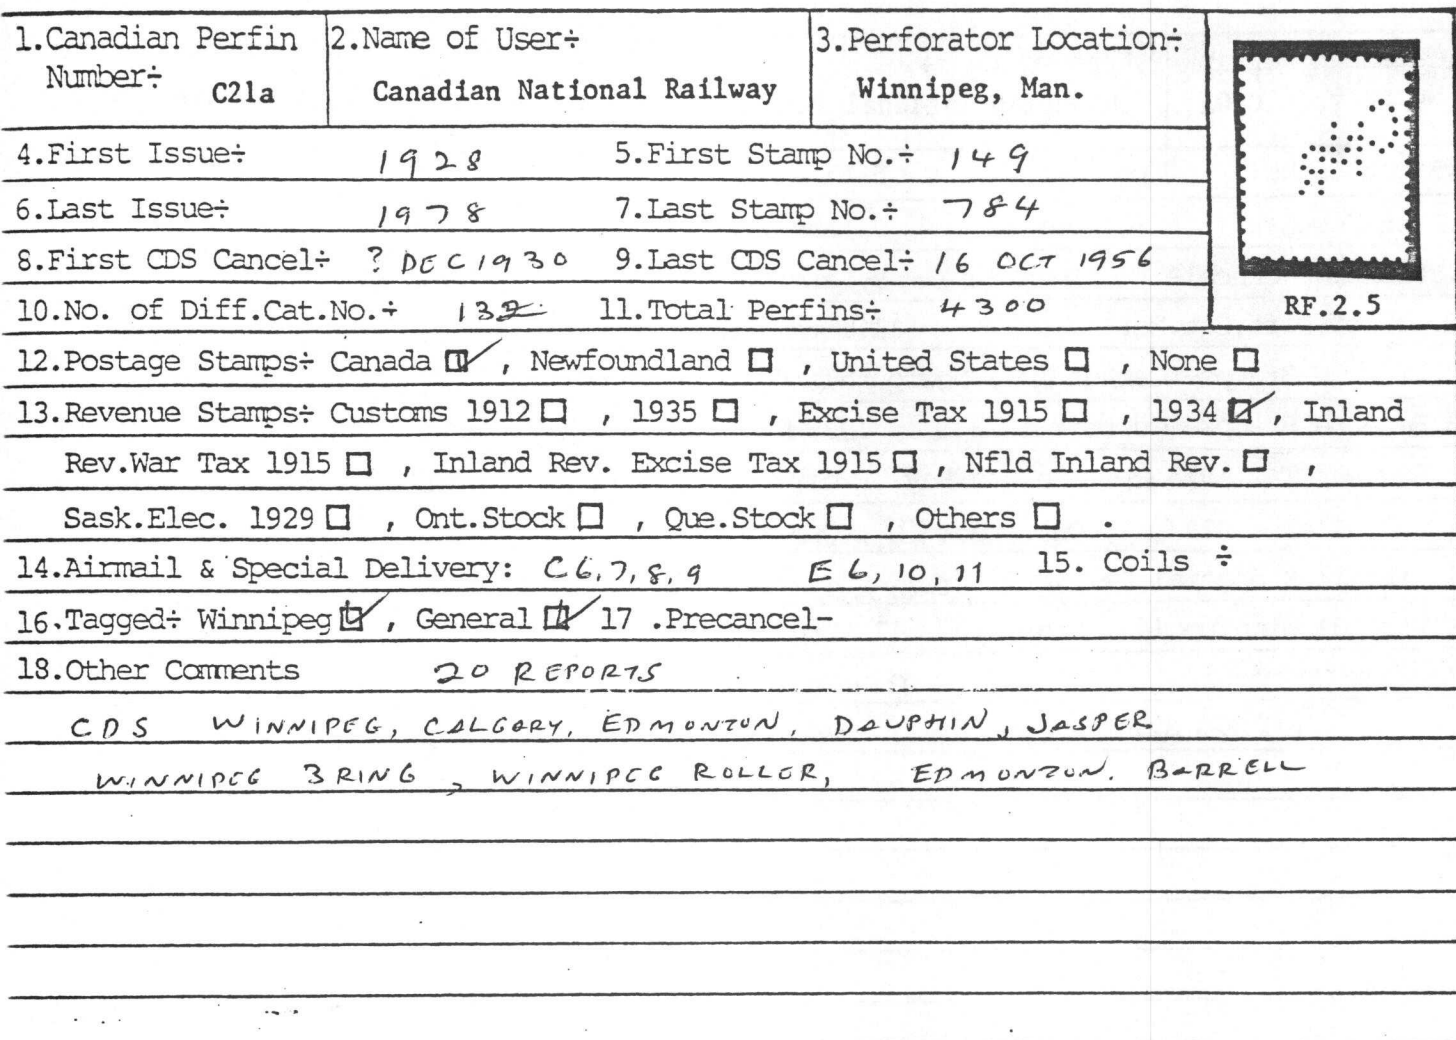 1.Canadian Perfin Number÷ C21a
2.Name of User÷ Canadian National Railway
3.Perforator Location÷ Winnipeg, Man.
4.First Issue÷ 1928 5.First Stamp No.÷ 149
6.Last Issue÷ 1978 7.Last Stamp No.÷ 784
8.First CDS Cancel÷ ? DEC 1930 9.Last CDS Cancel÷ 16 OCT 1956
10.No. of Diff.Cat.No.÷ 132 11.Total Perfins÷ 4300
RF.2.5
12.Postage Stamps÷ Canada ☑, Newfoundland ☐, United States ☐, None ☐
13.Revenue Stamps÷ Customs 1912 ☐, 1935 ☐, Excise Tax 1915 ☐, 1934 ☑, Inland
Rev.War Tax 1915 ☐, Inland Rev. Excise Tax 1915 ☐, Nfld Inland Rev. ☐,
Sask.Elec. 1929 ☐, Ont.Stock ☐, Que.Stock ☐, Others ☐.
14.Airmail & Special Delivery: C6,7,8,9 E6,10,11 15. Coils ÷
16.Tagged÷ Winnipeg ☑, General ☑ 17 .Precancel-
18.Other Comments 20 REPORTS
CDS WINNIPEG, CALGARY, EDMONTON, DAUPHIN, JASPER
WINNIPEG 3 RING, WINNIPEG ROLLER, EDMONTON. BARRELL